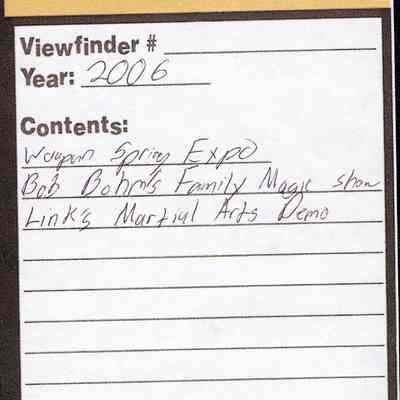 Viewfinder #
Year: 2006
Contents:
Waupun Spring Expo
Bob Bohm's Family Magic show
Link's Martial Arts Demo